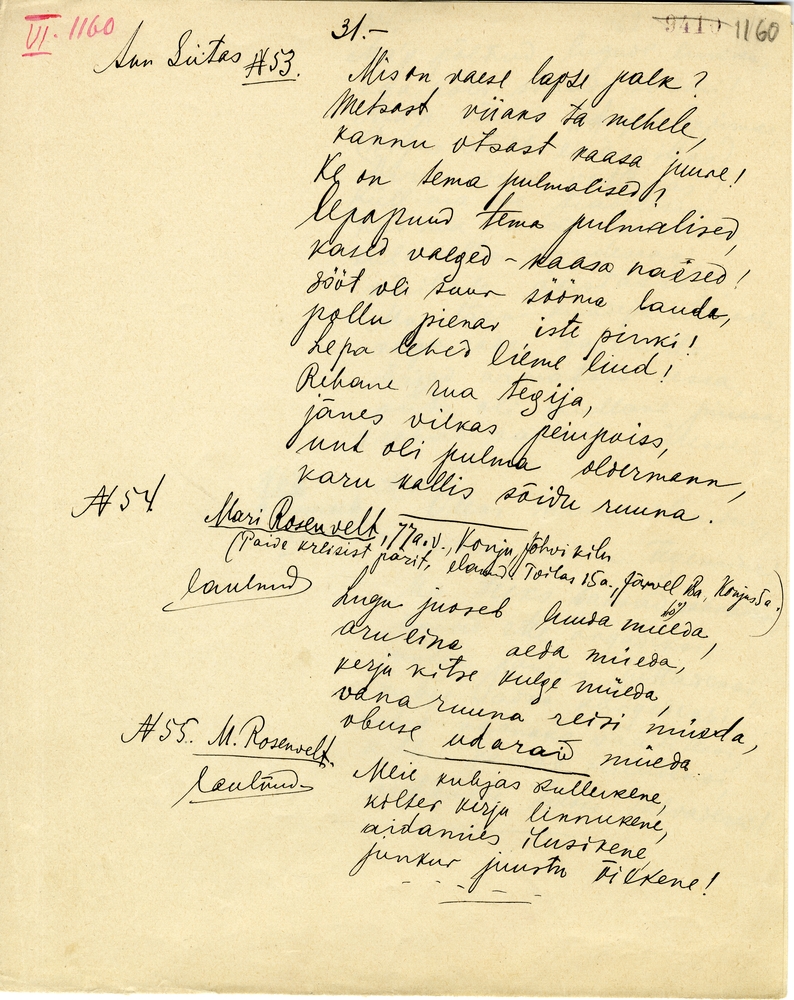 VI. 1160
31.-
9410 1160
Ann Siitas № 53.
Mis on vaese lapse palk?
Metsast viiaks ta mehele,
kannu otsast kaasa juure!
Ke on tema pulmalised?
Lepapuud tema pulmalised,
kased valged - kaasa naesed!
Sööt oli suur sööma lauda,
põllu pienar iste pinki!
Lepa lehed lieme liud!
Rebane rua tegija,
jänes vilkas peiupoiss,
unt oli pulma oldermann,
karu kallis sõidu ruuna.
№ 54
Mari Rosenvelt, 77 a. v., Konju, Jõhvi kihl
(Paide kreisist pärit, eland Toilas 15 a., Järvel 18 a, Konjus 5 a.)
laulnud
Lugu juoseb luuda müeda,
aru eina aeda müeda,
kerju kitse kulge müeda,
vana ruuna reisi müeda,
obuse udaraid müeda.
№ 55. M. Rosenvelt.
laulnud
Meie kubjas kullerkene,
kilter kirju linnukene,
aidamies ilusikene,
junkur juustu tilkene!